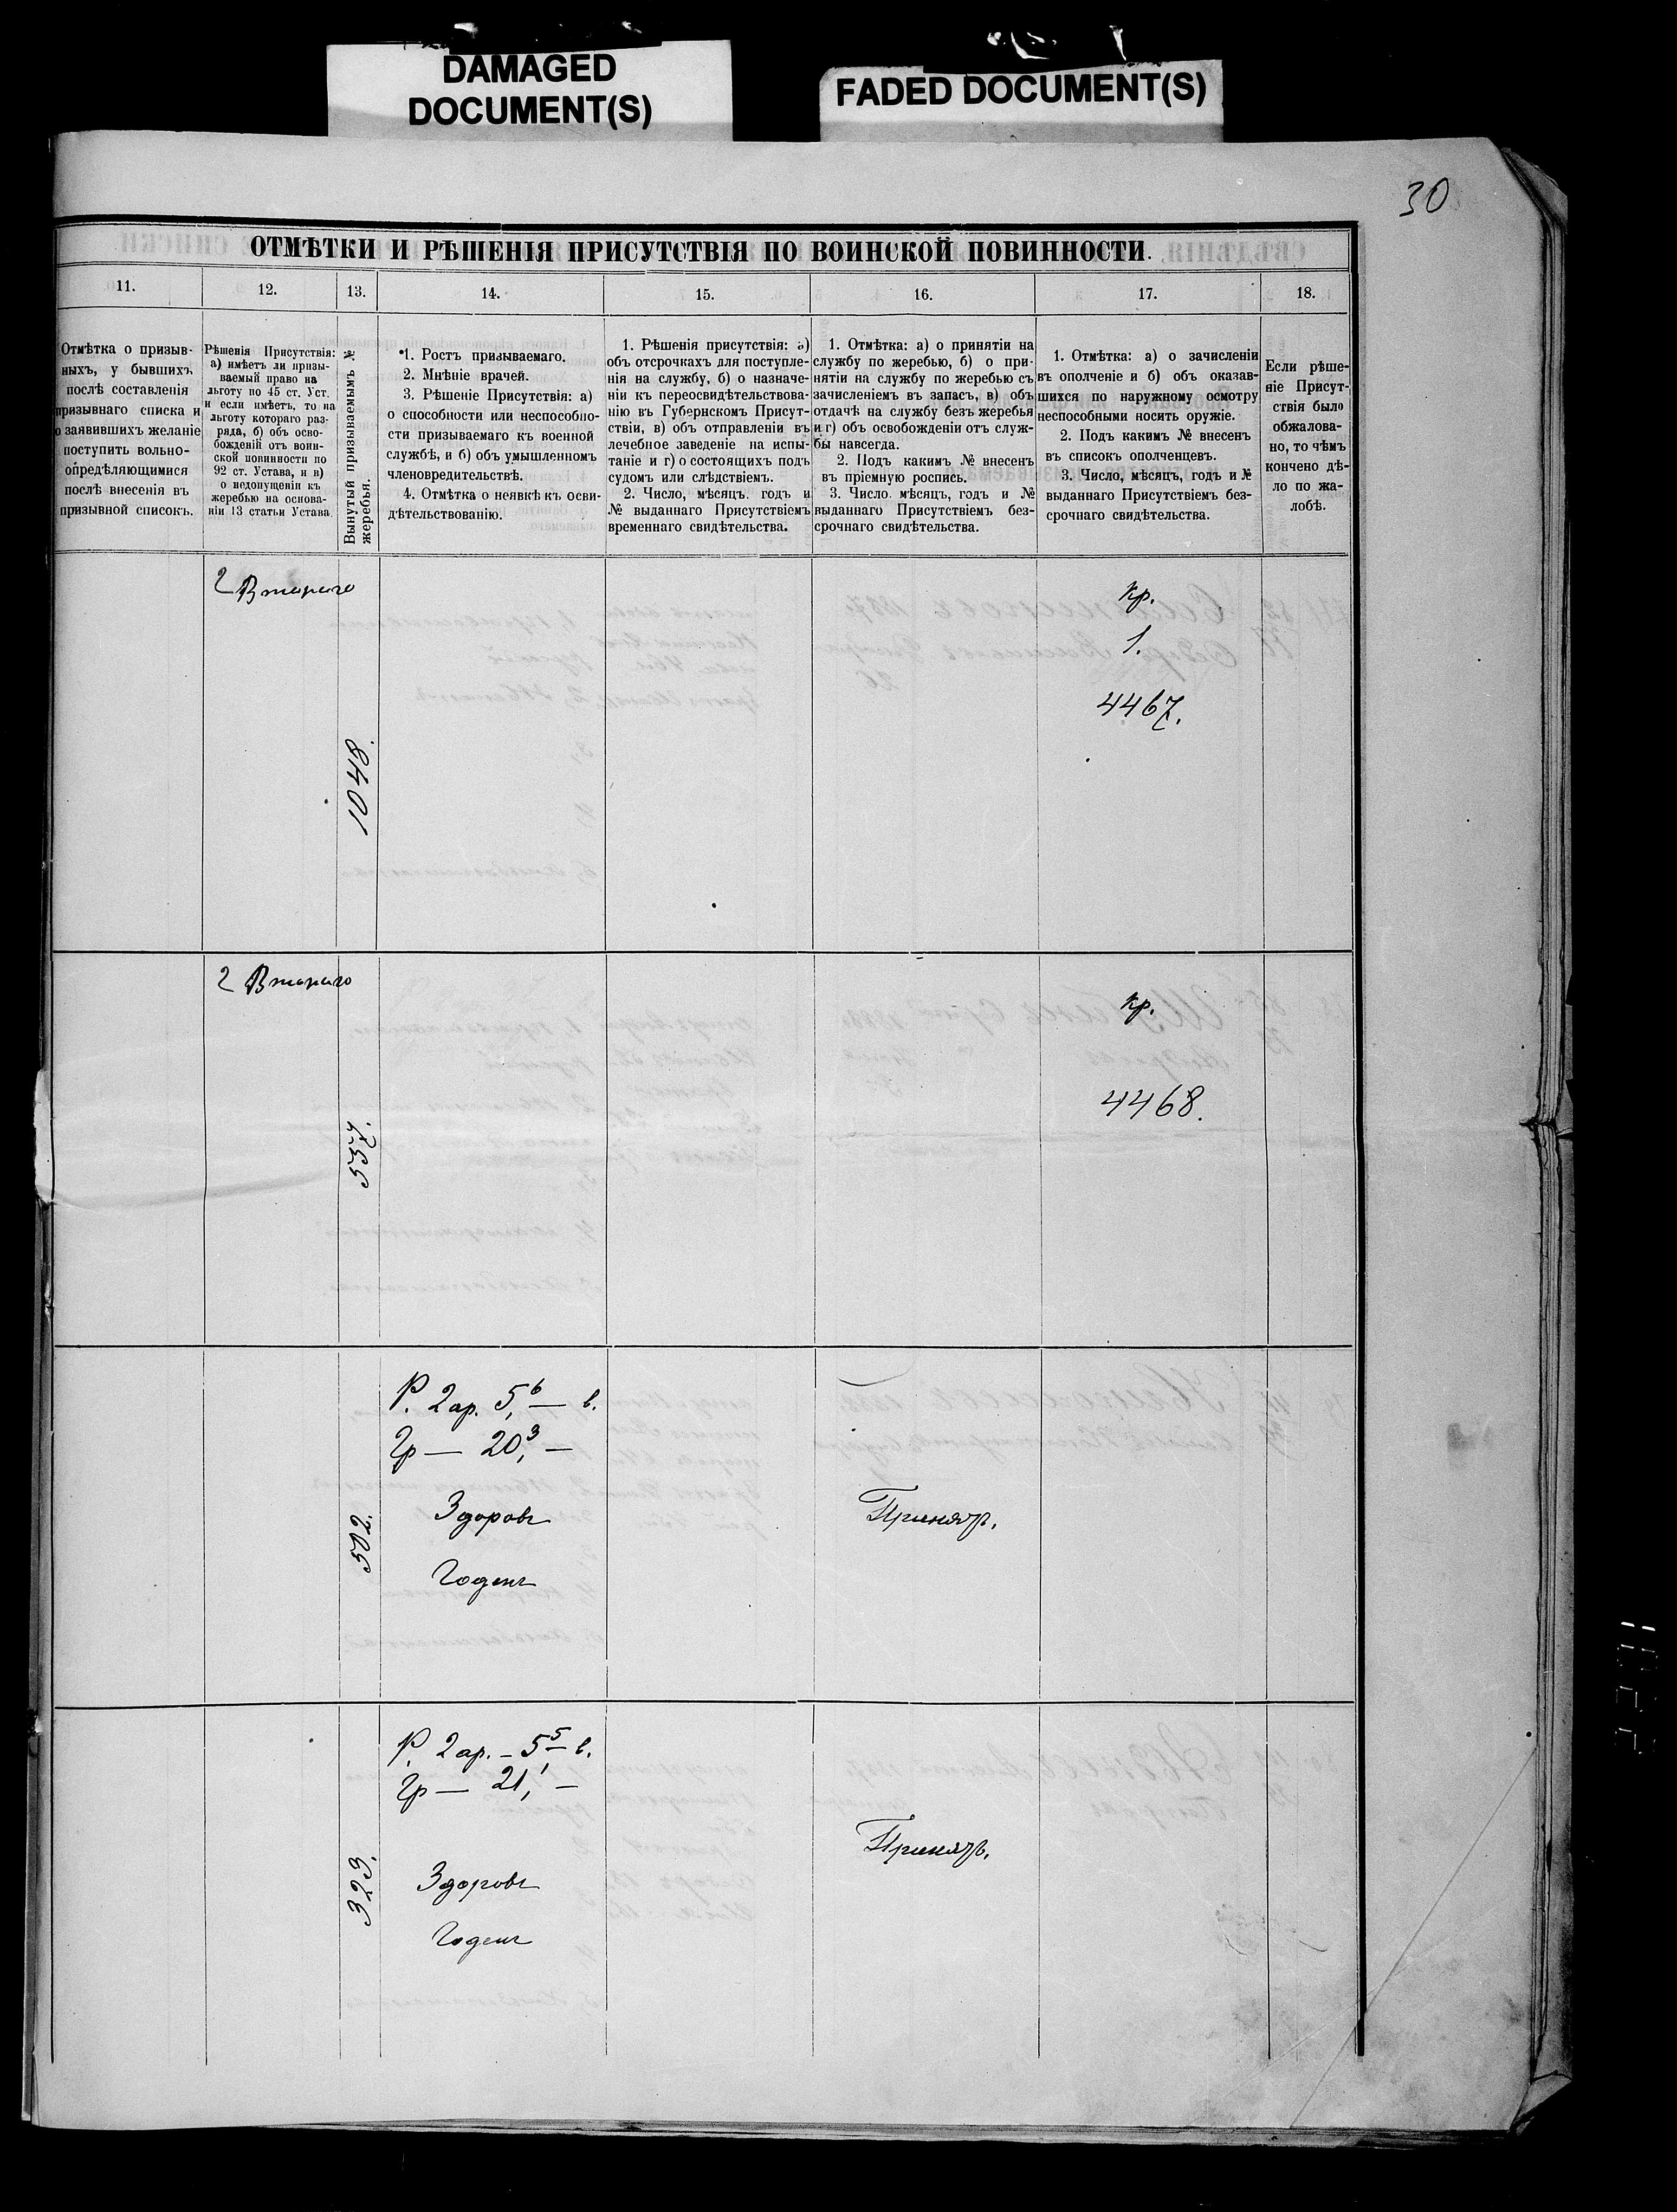 DAMAGED
DOCUMENT(S)
FADED DOCUMENT(S)
30
ОТМѢТКИ И РѢШЕНІЯ ПРИСУТСТВІЯ ПО ВОИНСКОЙ ПОВИННОСТИ.
11.
12.
13.
14.
15.
16.
17.
18.
Отмѣтка о призыв-
ныхъ, у бывшихъ
послѣ составленія
призывнаго списка и
о заявившихъ желаніе
поступить вольно-
опредѣляющимися
послѣ внесенія въ
призывной списокъ.
Рѣшенія Присутствія:
а) имѣетъ ли призы-
ваемый право на
льготу по 45 ст. Уст.
и если имѣетъ, то на
льготу котораго раз-
ряда, б) объ осво-
божденій отъ воин-
ской повинности по
92 ст. Устава, и в)
о недопущеніи къ
жеребью на основа-
ніи 13 статьи Устава.
Вынутый призываемымъ №
жеребья.
1. Ростъ призываемаго.
2. Мнѣніе врачей.
3. Рѣшеніе Присутствія: а)
о способности или неспособно-
сти призываемаго къ военной
службѣ, и б) объ умышленномъ
членовредительствѣ.
4. Отмѣтка о неявкѣ къ осви-
дѣтельствованію.
1. Рѣшенія присутствія: а)
объ отсрочкахъ для поступле-
нія на службу, б) о назначе-
ніи къ переосвидѣтельствова-
нію въ Губернскомъ Присут-
ствіи, в) объ отправленіи въ
лечебное заведеніе на испы-
таніе и г) о состоящихъ подъ
судомъ или слѣдствіемъ.
2. Число, мѣсяцъ, годъ и
№ выданнаго Присутствіемъ
временнаго свидѣтельства.
1. Отмѣтка: а) о принятіи на
службу по жеребью, б) о при-
нятіи на службу по жеребью съ
зачисленіемъ въ запасъ, в) объ
отдачѣ на службу безъ жеребья
и г) объ освобожденіи отъ служ-
бы навсегда.
2. Подъ какимъ № внесенъ
въ пріемную роспись.
3. Число, мѣсяцъ, годъ и №
выданнаго Присутствіемъ без-
срочнаго свидѣтельства.
1. Отмѣтка: а) о зачисленіи
въ ополченіе и б) объ оказав-
шихся по наружному осмотру
неспособными носить оружіе.
2. Подъ какимъ № внесенъ
въ списокъ ополченцевъ.
3. Число, мѣсяцъ, годъ и №
выданнаго Присутствіемъ без-
срочнаго свидѣтельства.
Если рѣше-
ніе Присут-
ствія было
обжалова-
но, то чѣмъ
кончено дѣ-
ло по жа-
лобѣ.
2 Втораго
1048.
кр.
1.
4467.
2 Втораго
557.
кр.
4468.
502.
Р. 2 ар. 5,6 — в.
Гр — 20,3 —
Здоровъ
Годенъ
Принятъ.
323.
Р. 2 ар. — 5 5 — в.
Гр — 21,1 —
Здоровъ
Годенъ
Принятъ.